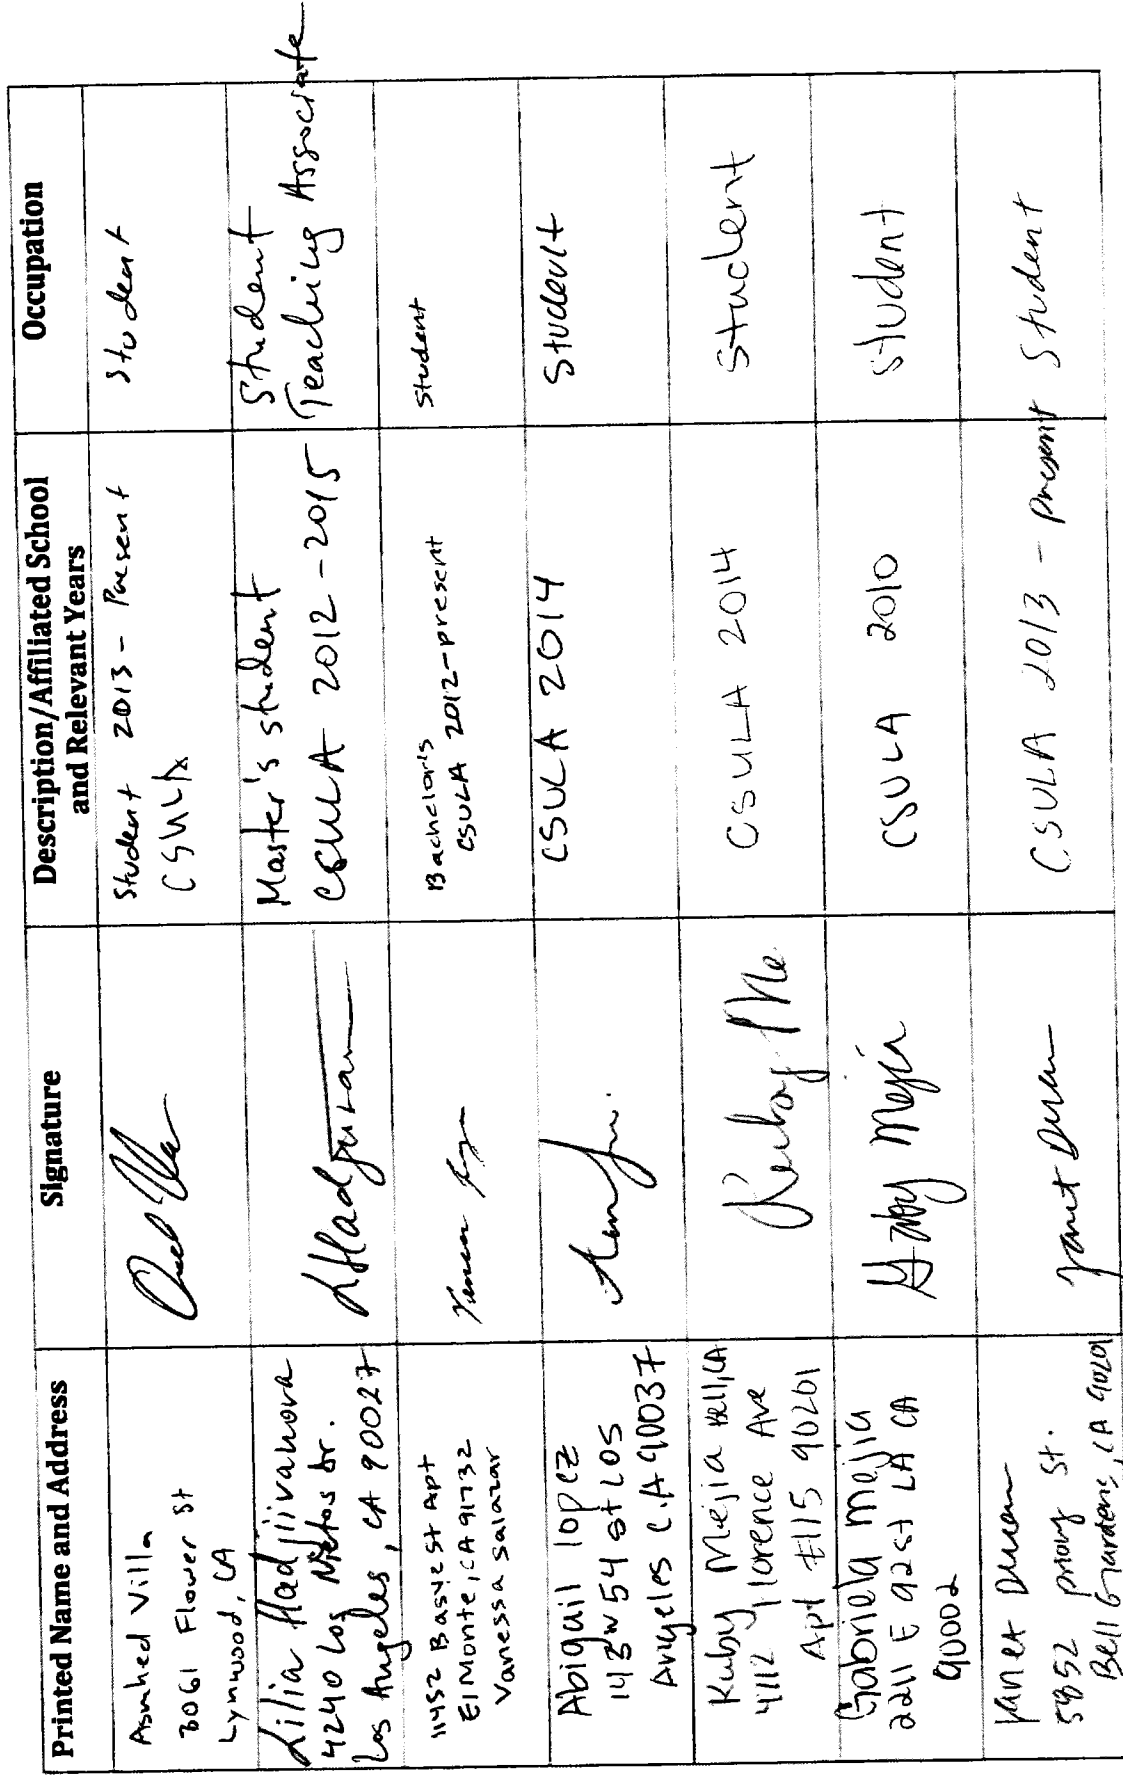 Printed Name and Address
Signature
Description/Affiliated School
and Relevant Years
Occupation
Asmhed Villa
3061 Flower St
Lynwood, CA
Student 2013 - Present
CSULA
Student
Lilia Hadjiivanova
4240 Los Nietos Dr.
Los Angeles, CA 90027
LHadjiivan
Master's student
CSULA 2012-2015
Student
Teaching Associate
11452 Basye St Apt
El Monte, CA 91732
Vanessa Salazar
Bachelor's
CSULA 2012-present
Student
Abigail lopez
143 W 54 st Los
Angeles C.A 90037
CSULA 2014
Student
Ruby Mejia Bell, CA
4112 Florence Ave
Apt E115 90201
Ruby Me
CSULA 2014
Student
Gabriela Mejia
2211 E 92st LA CA
90002
Gaby Mejia
CSULA 2010
Student
Janet Duran
5852 priory St.
Bell Gardens, CA 90201
Janet Duran
CSULA 2013 - present
Student